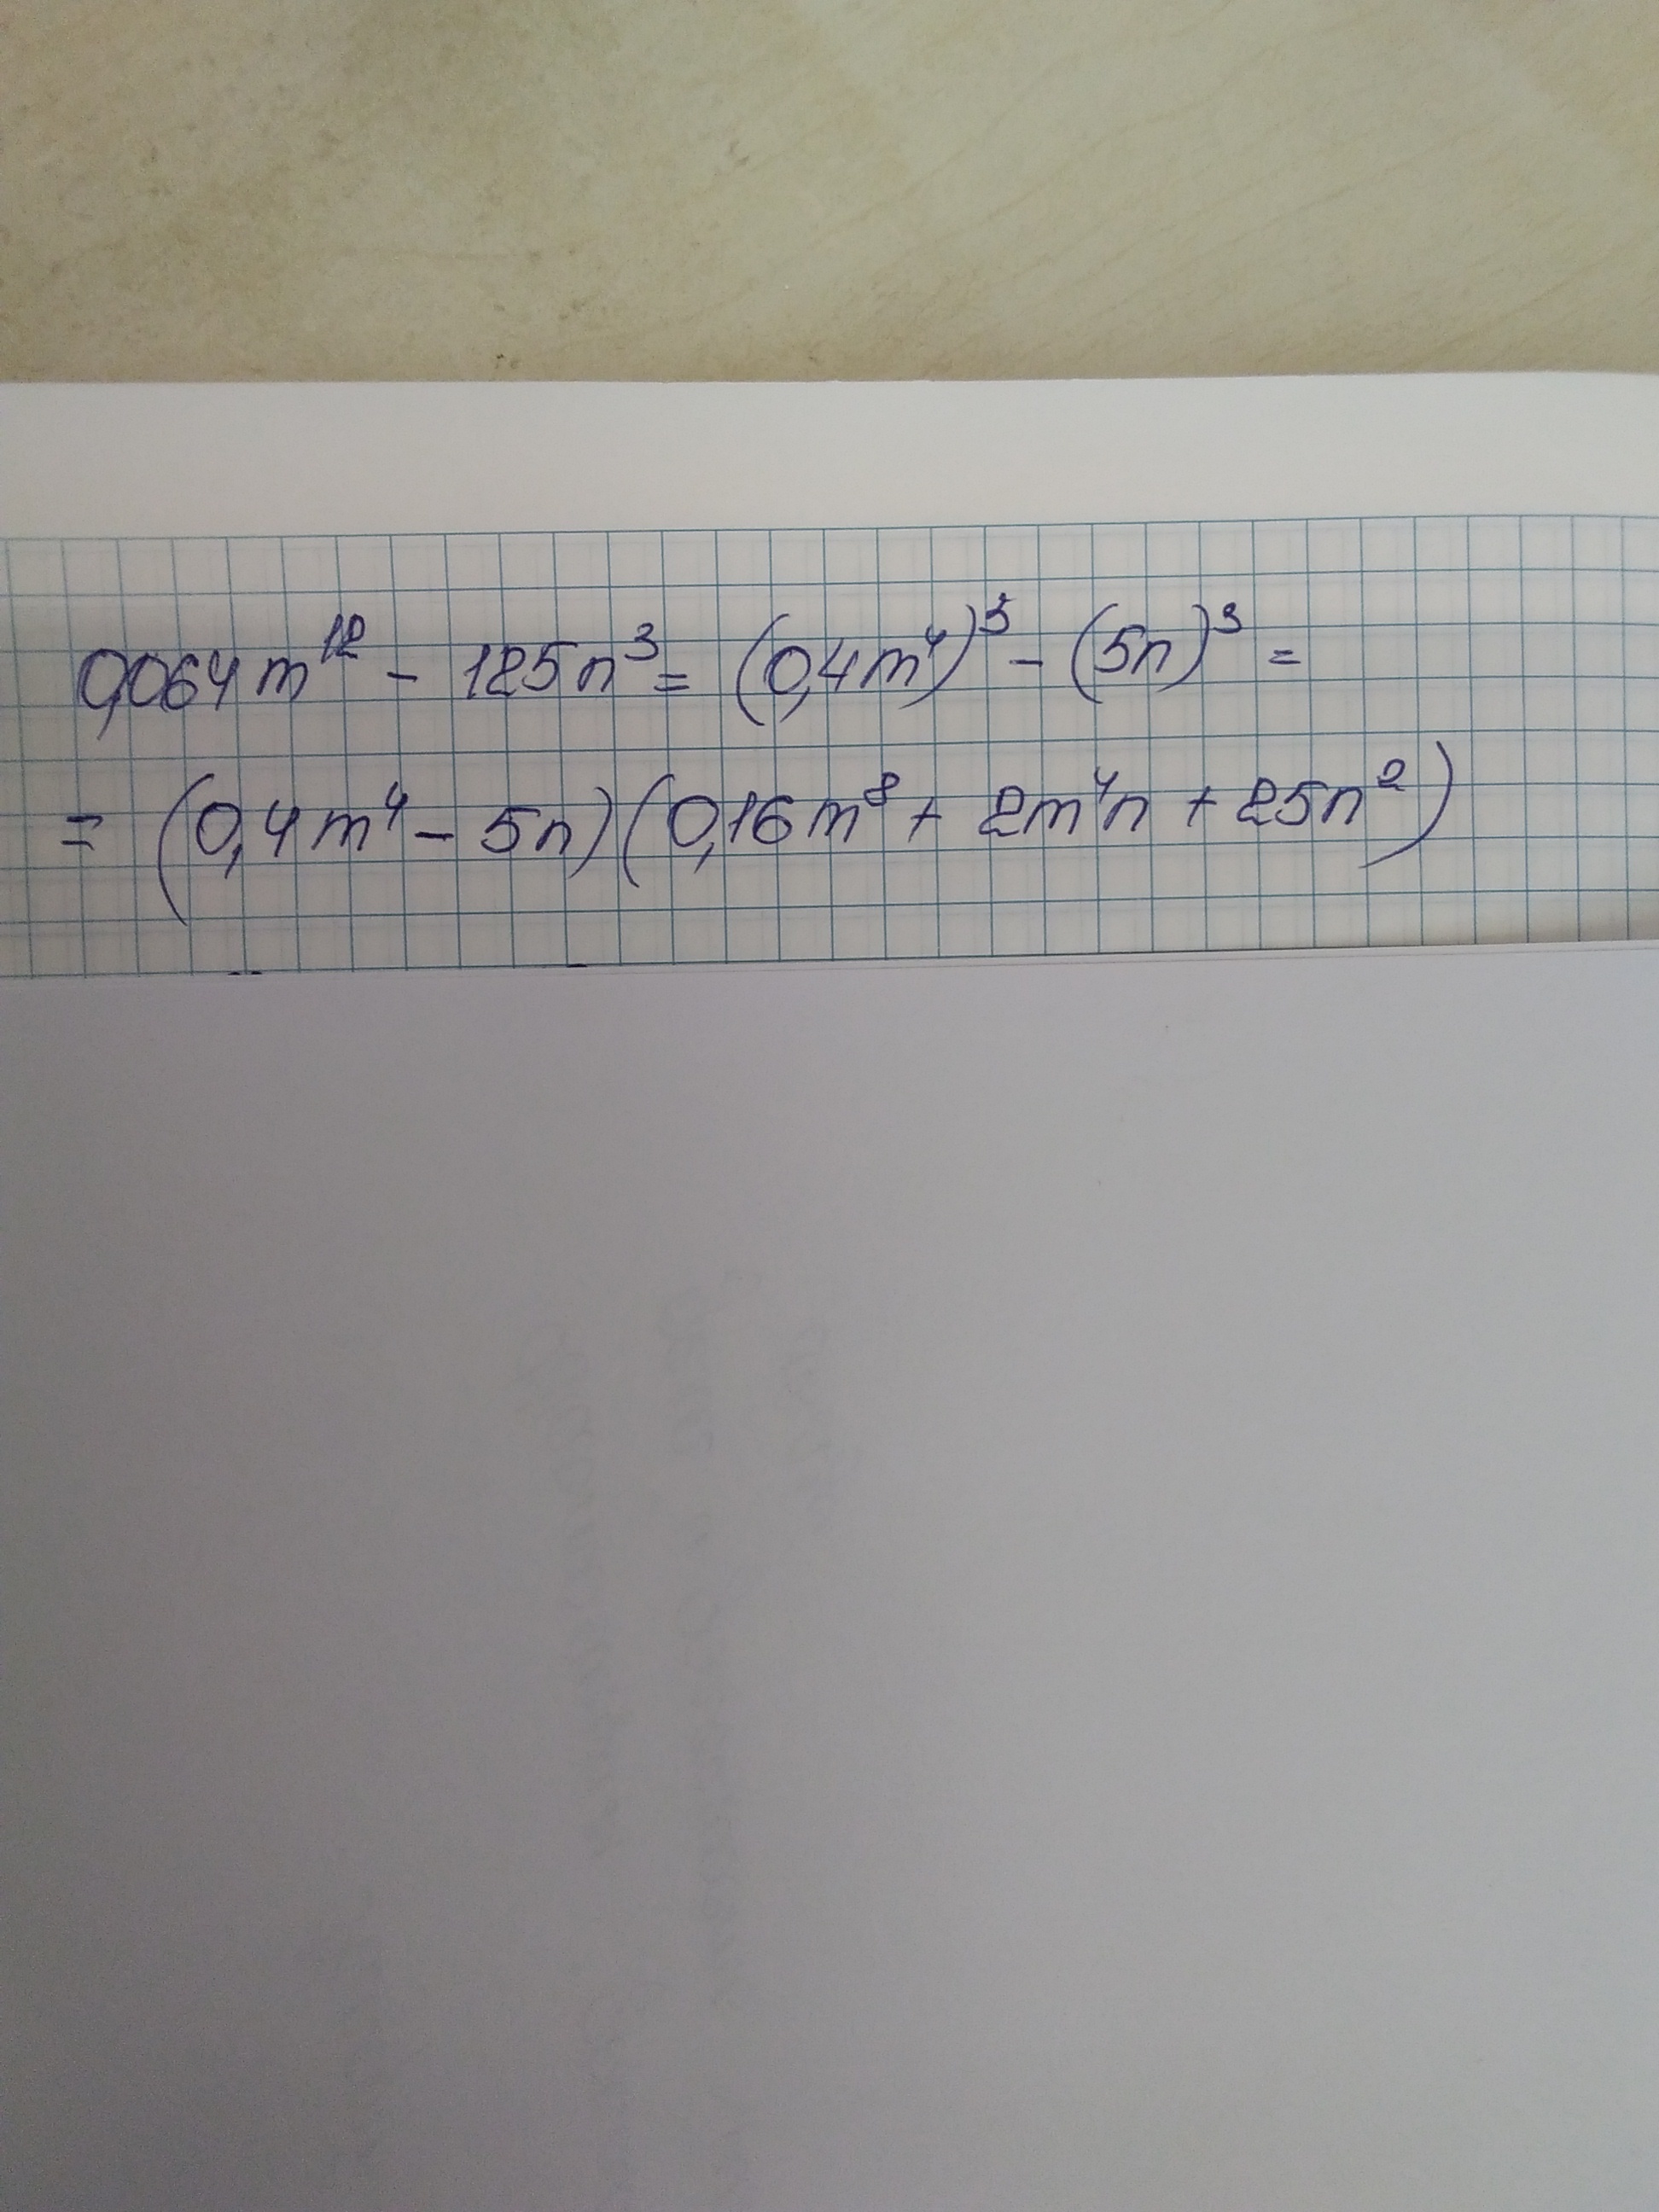 0,064m¹² - 125n³ = (0,4m⁴)³ - (5n)³ =
= (0,4m⁴ - 5n)(0,16m⁸ + 2m⁴n + 25n²)